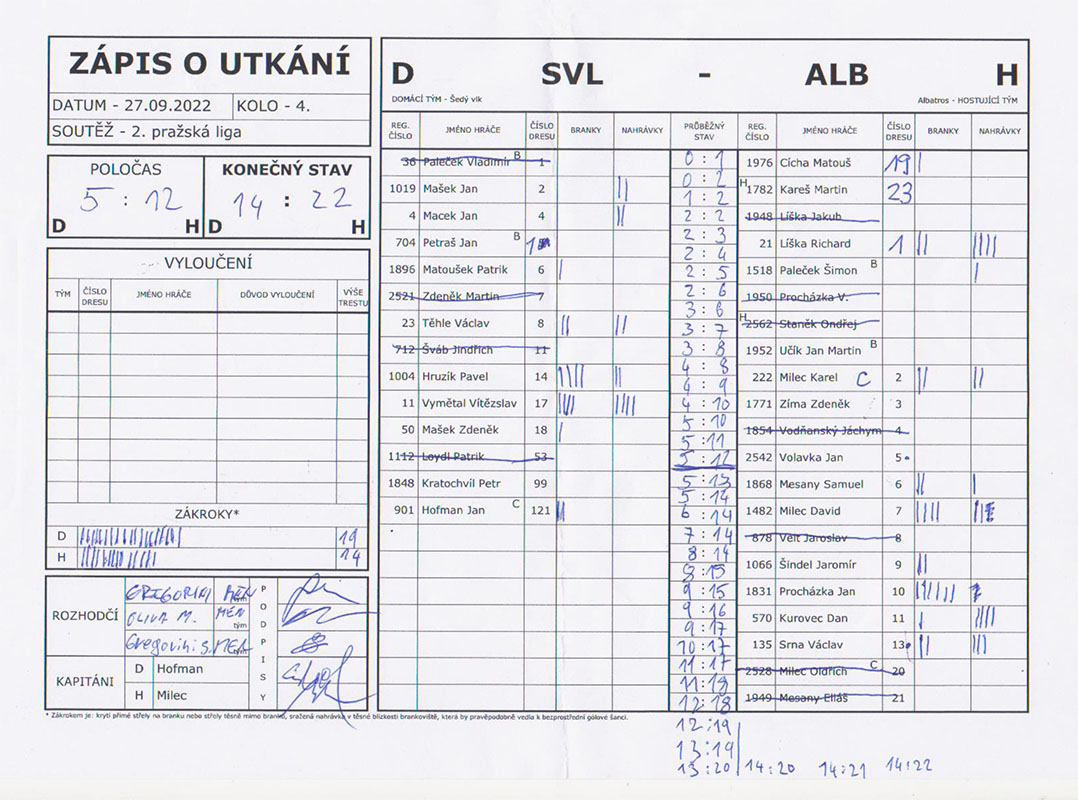 ZÁPIS O UTKÁNÍ
DATUM - 27.09.2022 KOLO - 4.
SOUTĚŽ - 2. pražská liga
POLOČAS KONEČNÝ STAV
5 : 12 14 : 22
D H D H
VYLOUČENÍ
TÝM ČÍSLO DRESU JMÉNO HRÁČE DŮVOD VYLOUČENÍ VÝŠE TRESTU
ZÁKROKY*
D 19
H 14
ROZHODČÍ
OLIVA M. MEN tým
PODPISY
KAPITÁNI
D Hofman
H Milec
D SVL - ALB H
DOMÁCÍ TÝM - Šedý vlk Albatros - HOSTUJÍCÍ TÝM
REG. ČÍSLO JMÉNO HRÁČE ČÍSLO DRESU BRANKY NAHRÁVKY PRŮBĚŽNÝ STAV REG. ČÍSLO JMÉNO HRÁČE ČÍSLO DRESU BRANKY NAHRÁVKY
36 Paleček Vladimír B 1
1019 Mašek Jan 2
4 Macek Jan 4
704 Petraš Jan B 1
1896 Matoušek Patrik 6
2521 Zdeněk Martin 7
23 Těhle Václav 8
712 Šváb Jindřich 11
1004 Hruzík Pavel 14
11 Vymětal Vítězslav 17
50 Mašek Zdeněk 18
1112 Loydl Patrik 53
1848 Kratochvíl Petr 99
901 Hofman Jan C 121
0 : 1
0 : 2
1 : 2
2 : 2
2 : 3
2 : 4
2 : 5
2 : 6
3 : 6
3 : 7
3 : 8
4 : 8
4 : 9
4 : 10
5 : 10
5 : 11
5 : 12
5 : 13
5 : 14
6 : 14
7 : 14
8 : 14
8 : 15
9 : 15
9 : 16
9 : 17
10 : 17
11 : 17
11 : 18
12 : 18
12 : 19
13 : 19
13 : 20 14 : 20 14 : 21 14 : 22
1976 Cícha Matouš 19
H 1782 Kareš Martin 23
1948 Líška Jakub
21 Líška Richard 1
1518 Paleček Šimon B
1950 Procházka V.
H 2562 Staněk Ondřej
1952 Učík Jan Martin B
222 Milec Karel C 2
1771 Zíma Zdeněk 3
1854 Vodňanský Jáchym 4
2542 Volavka Jan 5
1868 Mesany Samuel 6
1482 Milec David 7
878 Veit Jaroslav 8
1066 Šindel Jaromír 9
1831 Procházka Jan 10
570 Kurovec Dan 11
135 Srna Václav 13
2528 Milec Oldřich C 20
1949 Mesany Eliáš 21
* Zákrokem je: krytí přímé střely na branku nebo střely těsně mimo branku, sražená nahrávka v těsné blízkosti brankoviště, která by pravěpodobně vedla k bezprostřední gólové šanci.